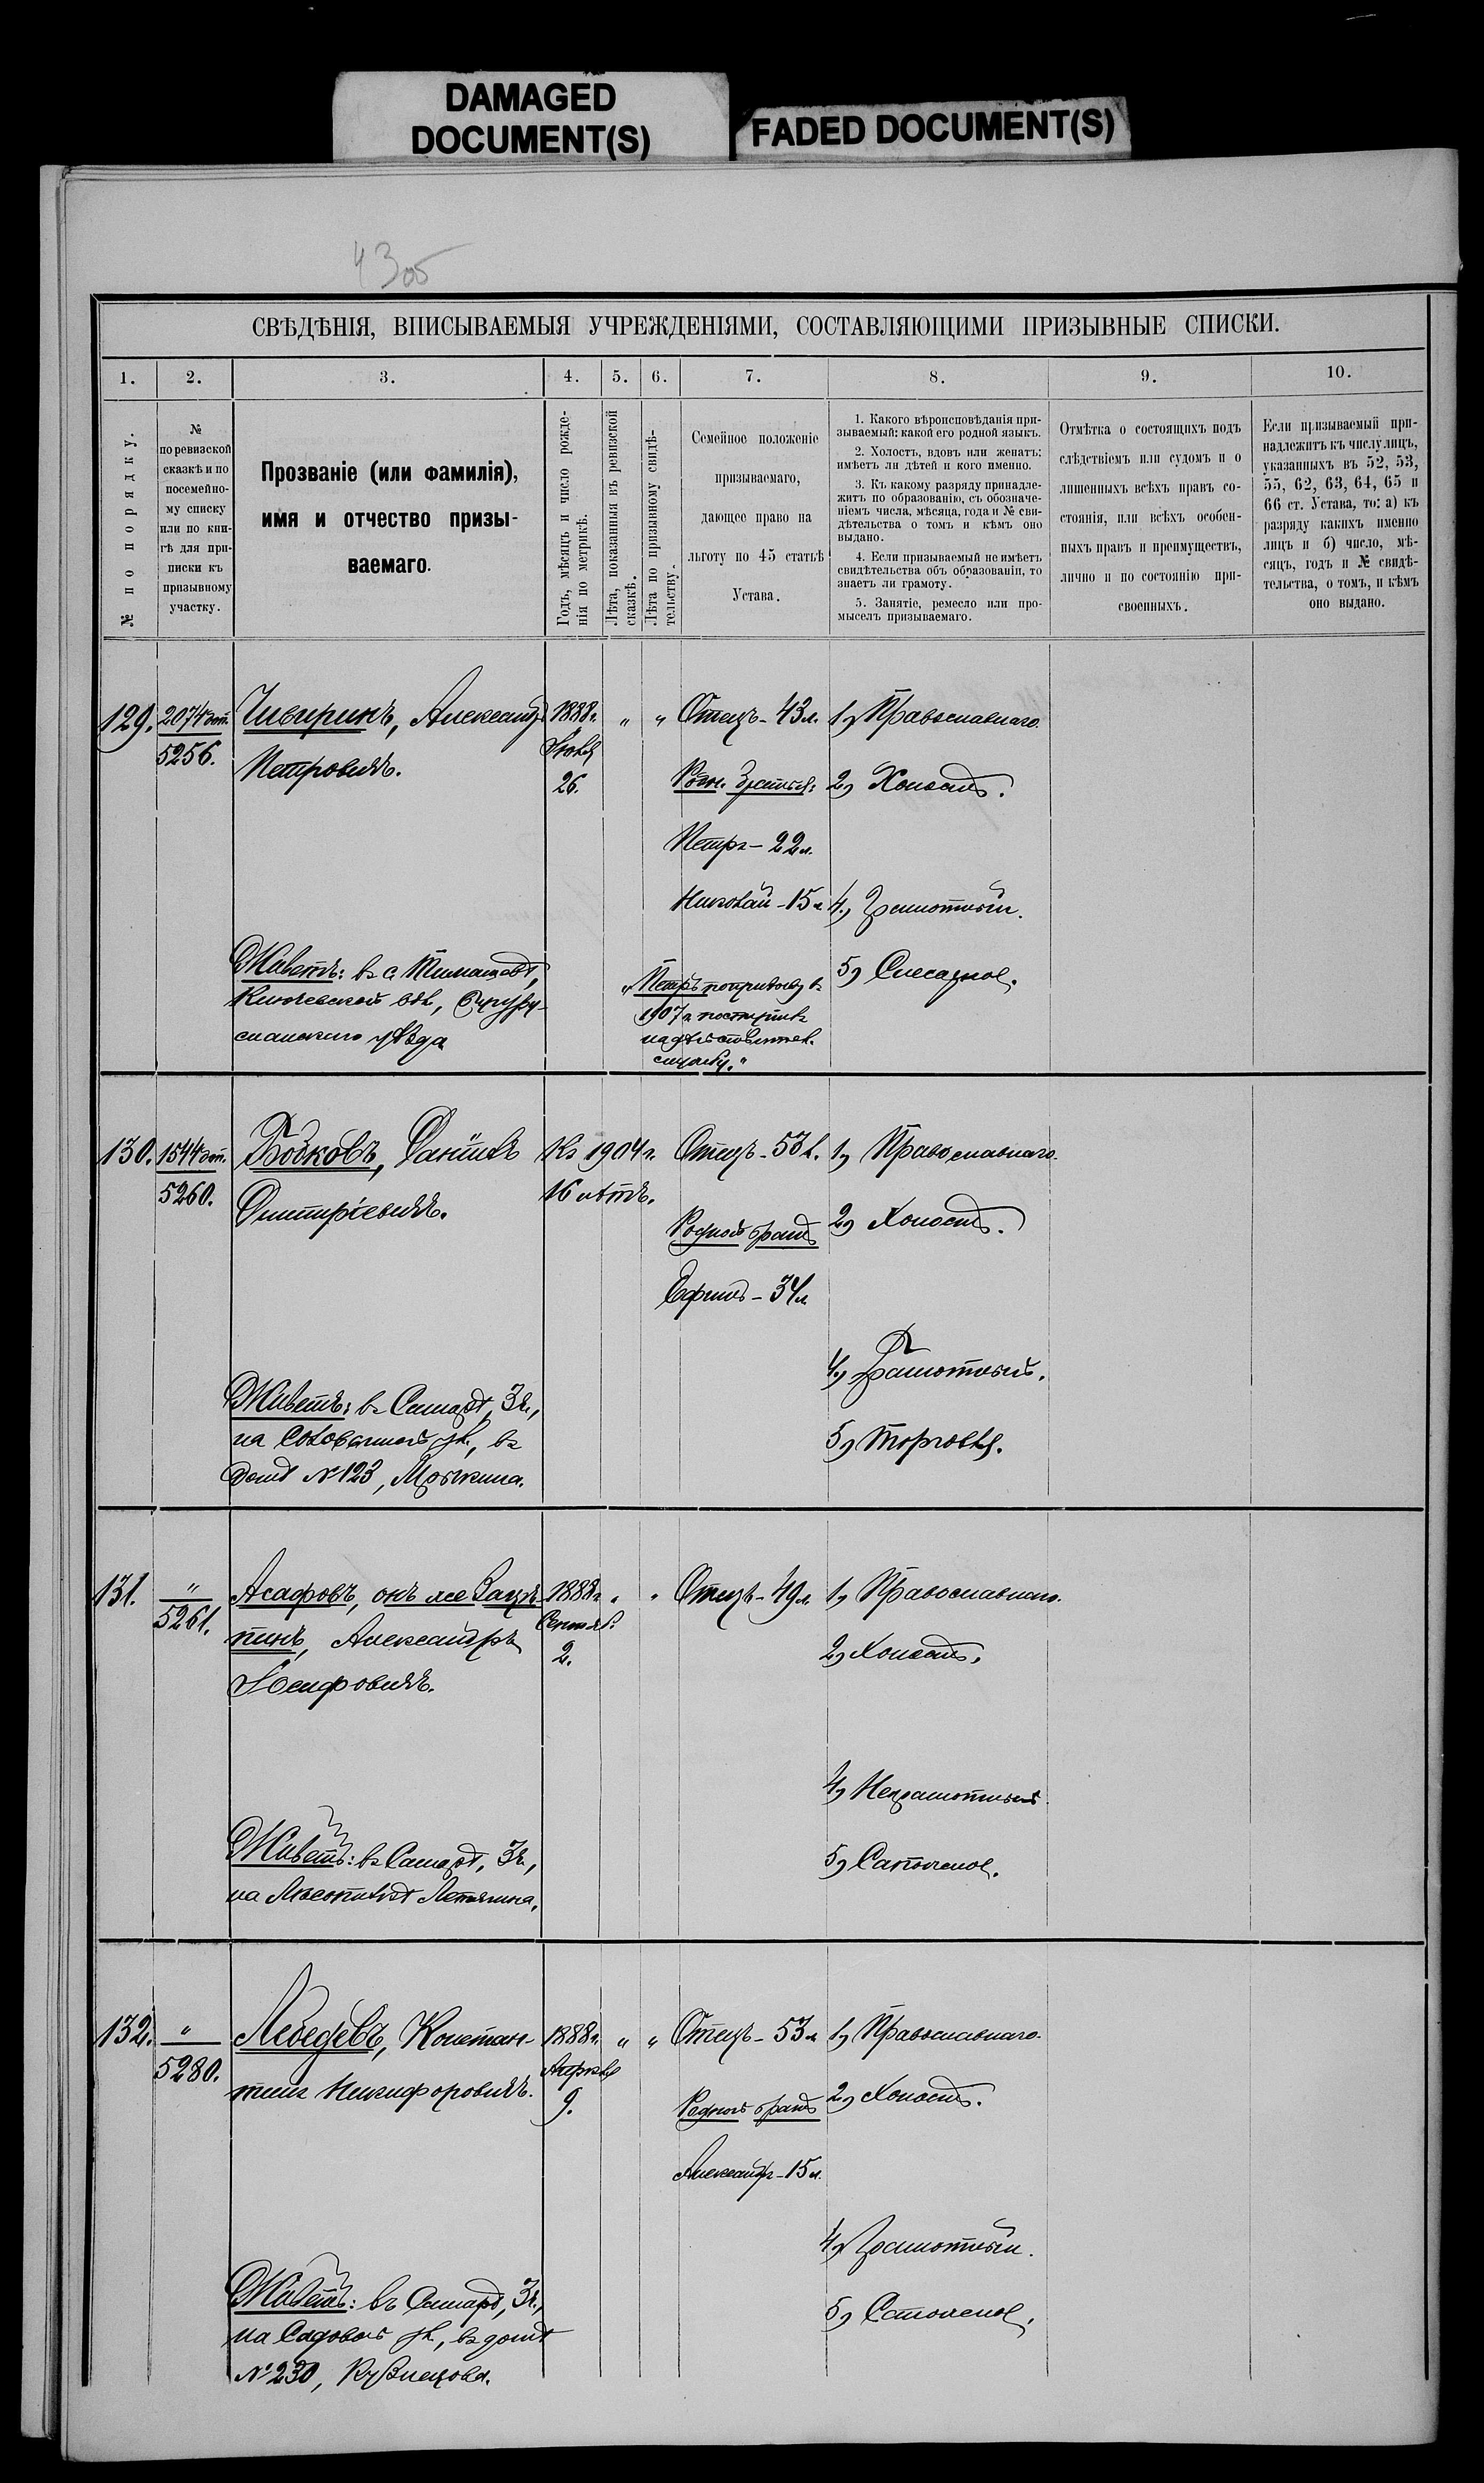 DAMAGED
DOCUMENT(S)
FADED DOCUMENT(S)
4305
СВѢДѢНІЯ, ВПИСЫВАЕМЫЯ УЧРЕЖДЕНІЯМИ, СОСТАВЛЯЮЩИМИ ПРИЗЫВНЫЕ СПИСКИ.
1. 2. 3. 4. 5. 6. 7. 8. 9. 10.
№ по порядку.
№
по ревизской
сказкѣ и по
посемейно-
му списку
или по кни-
гѣ для при-
писки къ
призывному
участку.
Прозваніе (или фамилія),
имя и отчество призы-
ваемаго.
Годъ, мѣсяцъ и число рожде-
нія по метрикѣ.
Лѣта, показанныя въ ревизской
сказкѣ.
Лѣта по призывному свидѣ-
тельству.
Семейное положеніе
призываемаго,
дающее право на
льготу по 45 статьѣ
Устава.
1. Какого вѣроисповѣданія при-
зываемый: какой его родной языкъ.
2. Холостъ, вдовъ или женатъ:
имѣетъ ли дѣтей и кого именно.
3. Къ какому разряду принадле-
житъ по образованію, съ обозначе-
ніемъ числа, мѣсяца, года и № сви-
дѣтельства о томъ и кѣмъ оно
выдано.
4. Если призываемый не имѣетъ
свидѣтельства объ образованіи, то
знаетъ ли грамоту.
5. Занятіе, ремесло или про-
мыселъ призываемаго.
Отмѣтка о состоящихъ подъ
слѣдствіемъ или судомъ и о
лишенныхъ всѣхъ правъ со-
стоянія, или всѣхъ особен-
ныхъ правъ и преимуществъ,
лично и по состоянію при-
своенныхъ.
Если призываемый при-
надлежитъ къ числу лицъ,
указанныхъ въ 52, 53,
55, 62, 63, 64, 65 и
66 ст. Устава, то: а) къ
разряду какихъ именно
лицъ и б) число, мѣ-
сяцъ, годъ и № свидѣ-
тельства, о томъ, и кѣмъ
оно выдано.
129.
2074
5256.
Чивиринъ, Александръ
Петровичъ.
Живетъ: въ с. Тимашевѣ,
Ключевской вол., Бугуру-
сланскаго уѣзда
1888г.
Іюля
26.
" "
Отецъ - 43л.
Родн. братья:
Петръ - 22л.
Николай - 15л.
"Петръ по призыву въ
1907г. поступилъ
на дѣйствител.
службу."
1, Православнаго.
2, Холостъ.
4, Грамотный.
5, Слесарное.
130.
1544
5260.
Бобковъ, Даніилъ
Дмитріевичъ.
Живетъ: въ Самарѣ, 3ч.,
на Соловьиной ул., въ
домѣ №123,
Къ 1904г.
16 лѣтъ.
Отецъ - 53л.
Родной братъ
Ефимъ - 34л.
1, Православнаго.
2, Холостъ.
4, Грамотный.
5, Торговля.
131.
"
5261.
Асафовъ, онъ же
пинъ, Александръ
Іосифовичъ.
Живетъ: въ Самарѣ, 3ч.,
на Лѣсопилкѣ Летягина.
1888г.
Сентяб.
2.
" "
Отецъ - 49л.
1, Православнаго.
2, Холостъ.
4, Неграмотный
5, Сапожное.
132.
"
5280.
Лебедевъ, Констан-
тинъ Никифоровичъ.
Живетъ: въ Самарѣ, 3ч.,
на Садовой ул., въ домѣ
№230, Кузнецова.
1888г.
Апрѣля
9.
" "
Отецъ - 53л.
Родной братъ
Александръ - 15л.
1, Православнаго.
2, Холостъ.
4, Грамотный.
5,